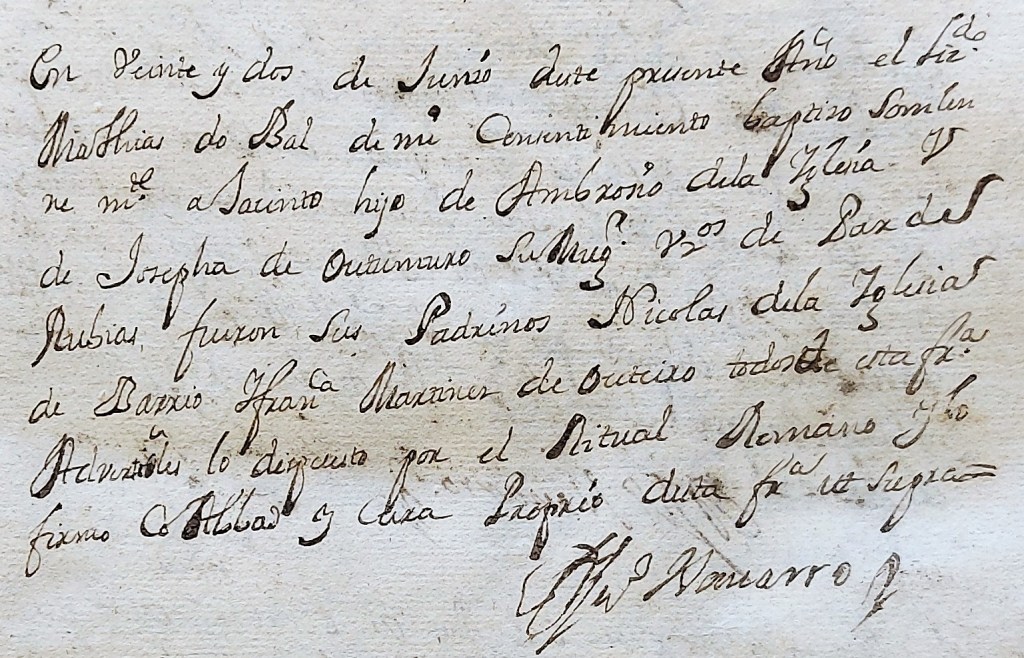 En Veinte y dos de Junio deste presente Año el Lizdo
Mathias do Bal de mi Consentimiento baptizo Somlen
ne mte a Jacinto hijo de Ambrosio dela Yglesia Y
de Josepha de Outumuro Su Mugr. Vzos de Par des
Rubias, fueron sus Padrinos Nicolas dela Yglesia
de Barrio Yfranca Martinez de Outeiro todos de esta fra
Advertiles lo dispuesto por el Ritual Romano Ylo
firmo Co Abbad y Cura Proprio desta fra ut Supra=
Navarro